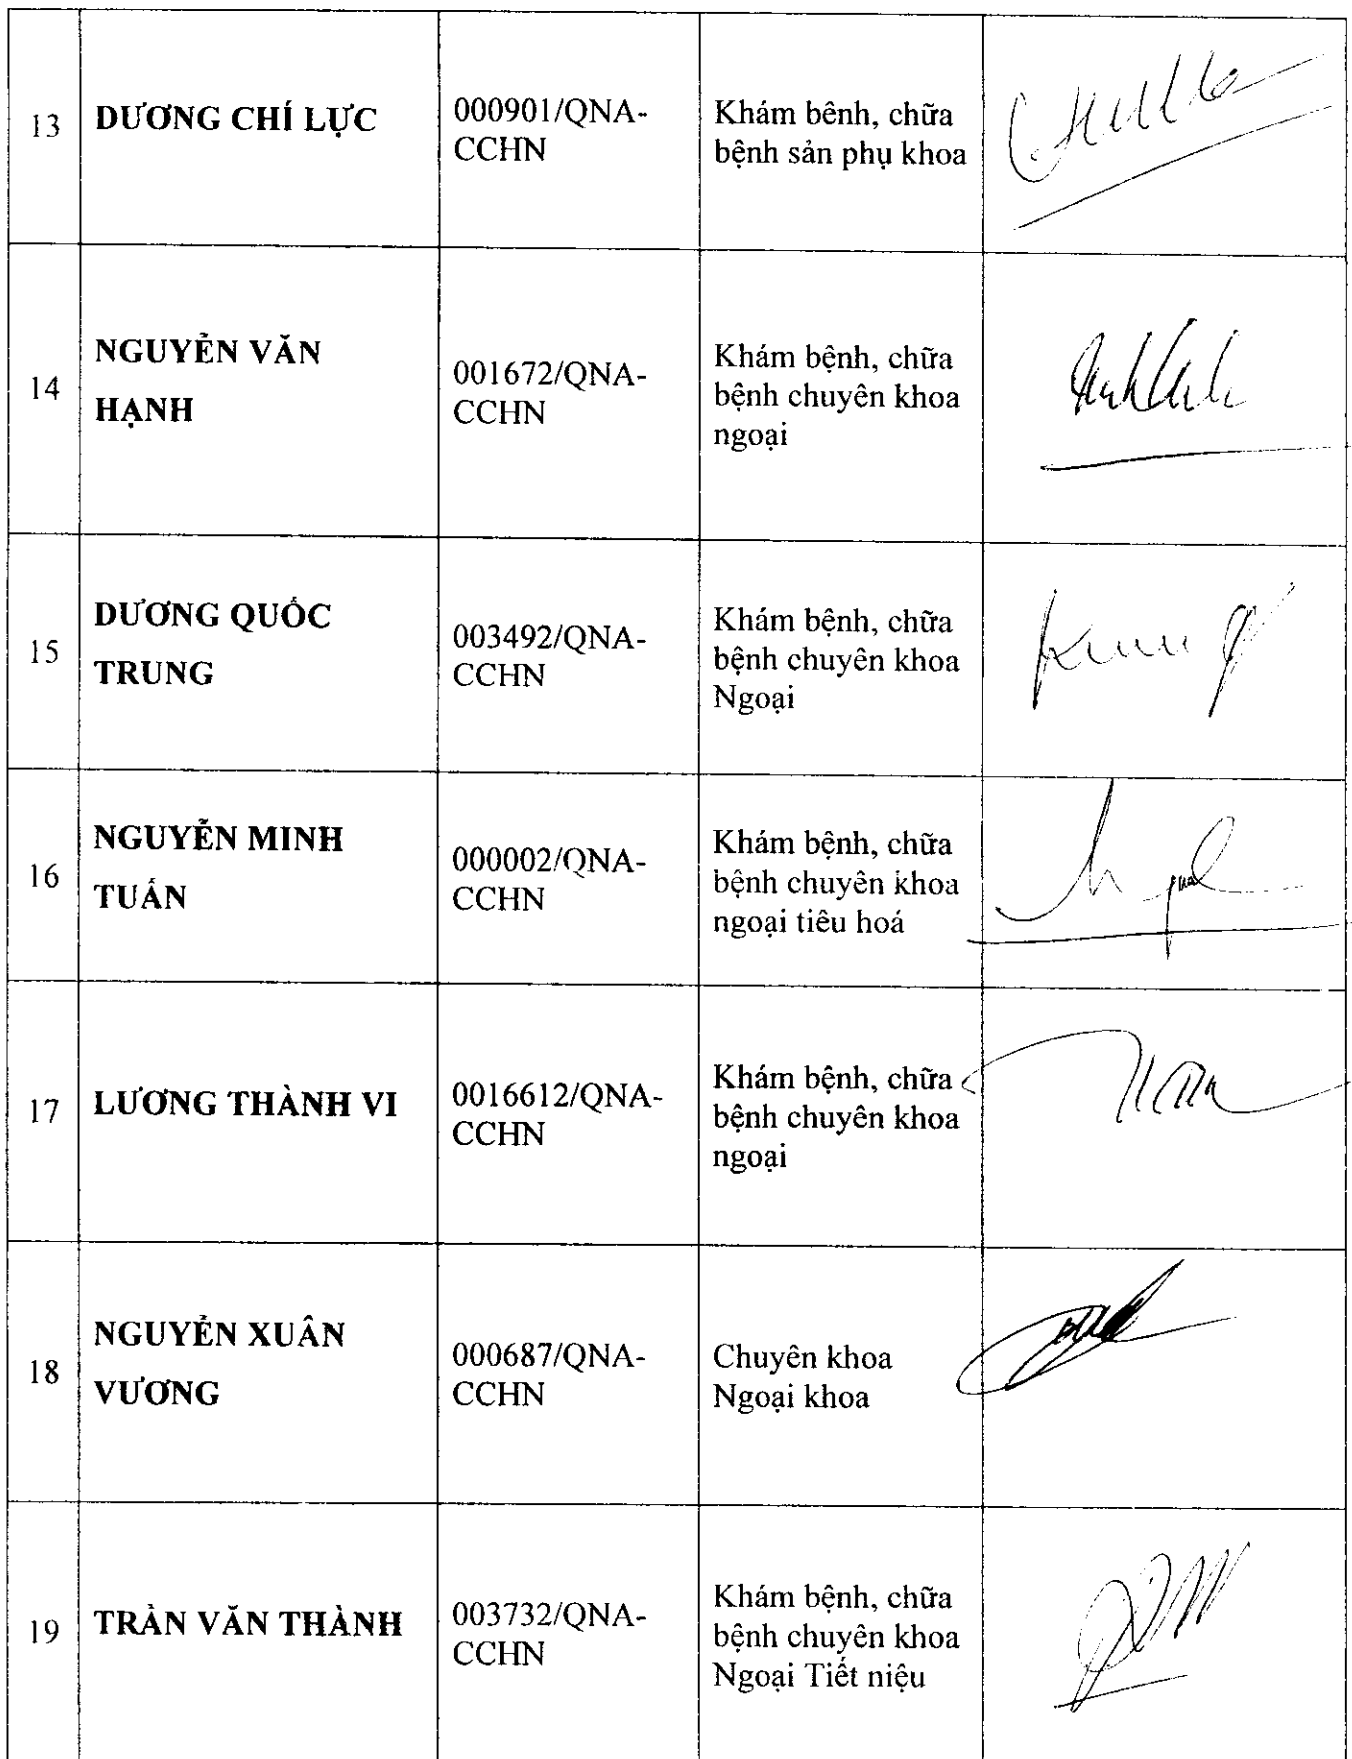 13
DƯƠNG CHÍ LỰC
000901/QNA-
CCHN
Khám bênh, chữa
bệnh sản phụ khoa
14
NGUYỄN VĂN
HẠNH
001672/QNA-
CCHN
Khám bệnh, chữa
bệnh chuyên khoa
ngoại
15
DƯƠNG QUỐC
TRUNG
003492/QNA-
CCHN
Khám bệnh, chữa
bệnh chuyên khoa
Ngoại
16
NGUYỄN MINH
TUẤN
000002/QNA-
CCHN
Khám bệnh, chữa
bệnh chuyên khoa
ngoại tiêu hoá
17
LƯƠNG THÀNH VI
0016612/QNA-
CCHN
Khám bệnh, chữa
bệnh chuyên khoa
ngoại
18
NGUYỄN XUÂN
VƯƠNG
000687/QNA-
CCHN
Chuyên khoa
Ngoại khoa
19
TRẦN VĂN THÀNH
003732/QNA-
CCHN
Khám bệnh, chữa
bệnh chuyên khoa
Ngoại Tiết niệu